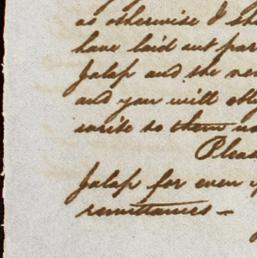 as otherwise I sh
have laid out par
Jalap and the ne
and you will ob
write to them
Pleas
Jalap for even
remittances —